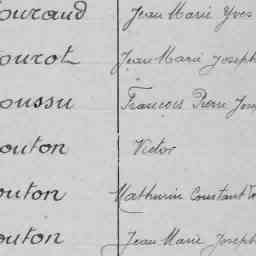 ouraud Jean Marie Yves
ourot Jean Marie Joseph
oussu François Pierre
outon Victor
outon Mathurin Constant
outon Jean Marie Joseph